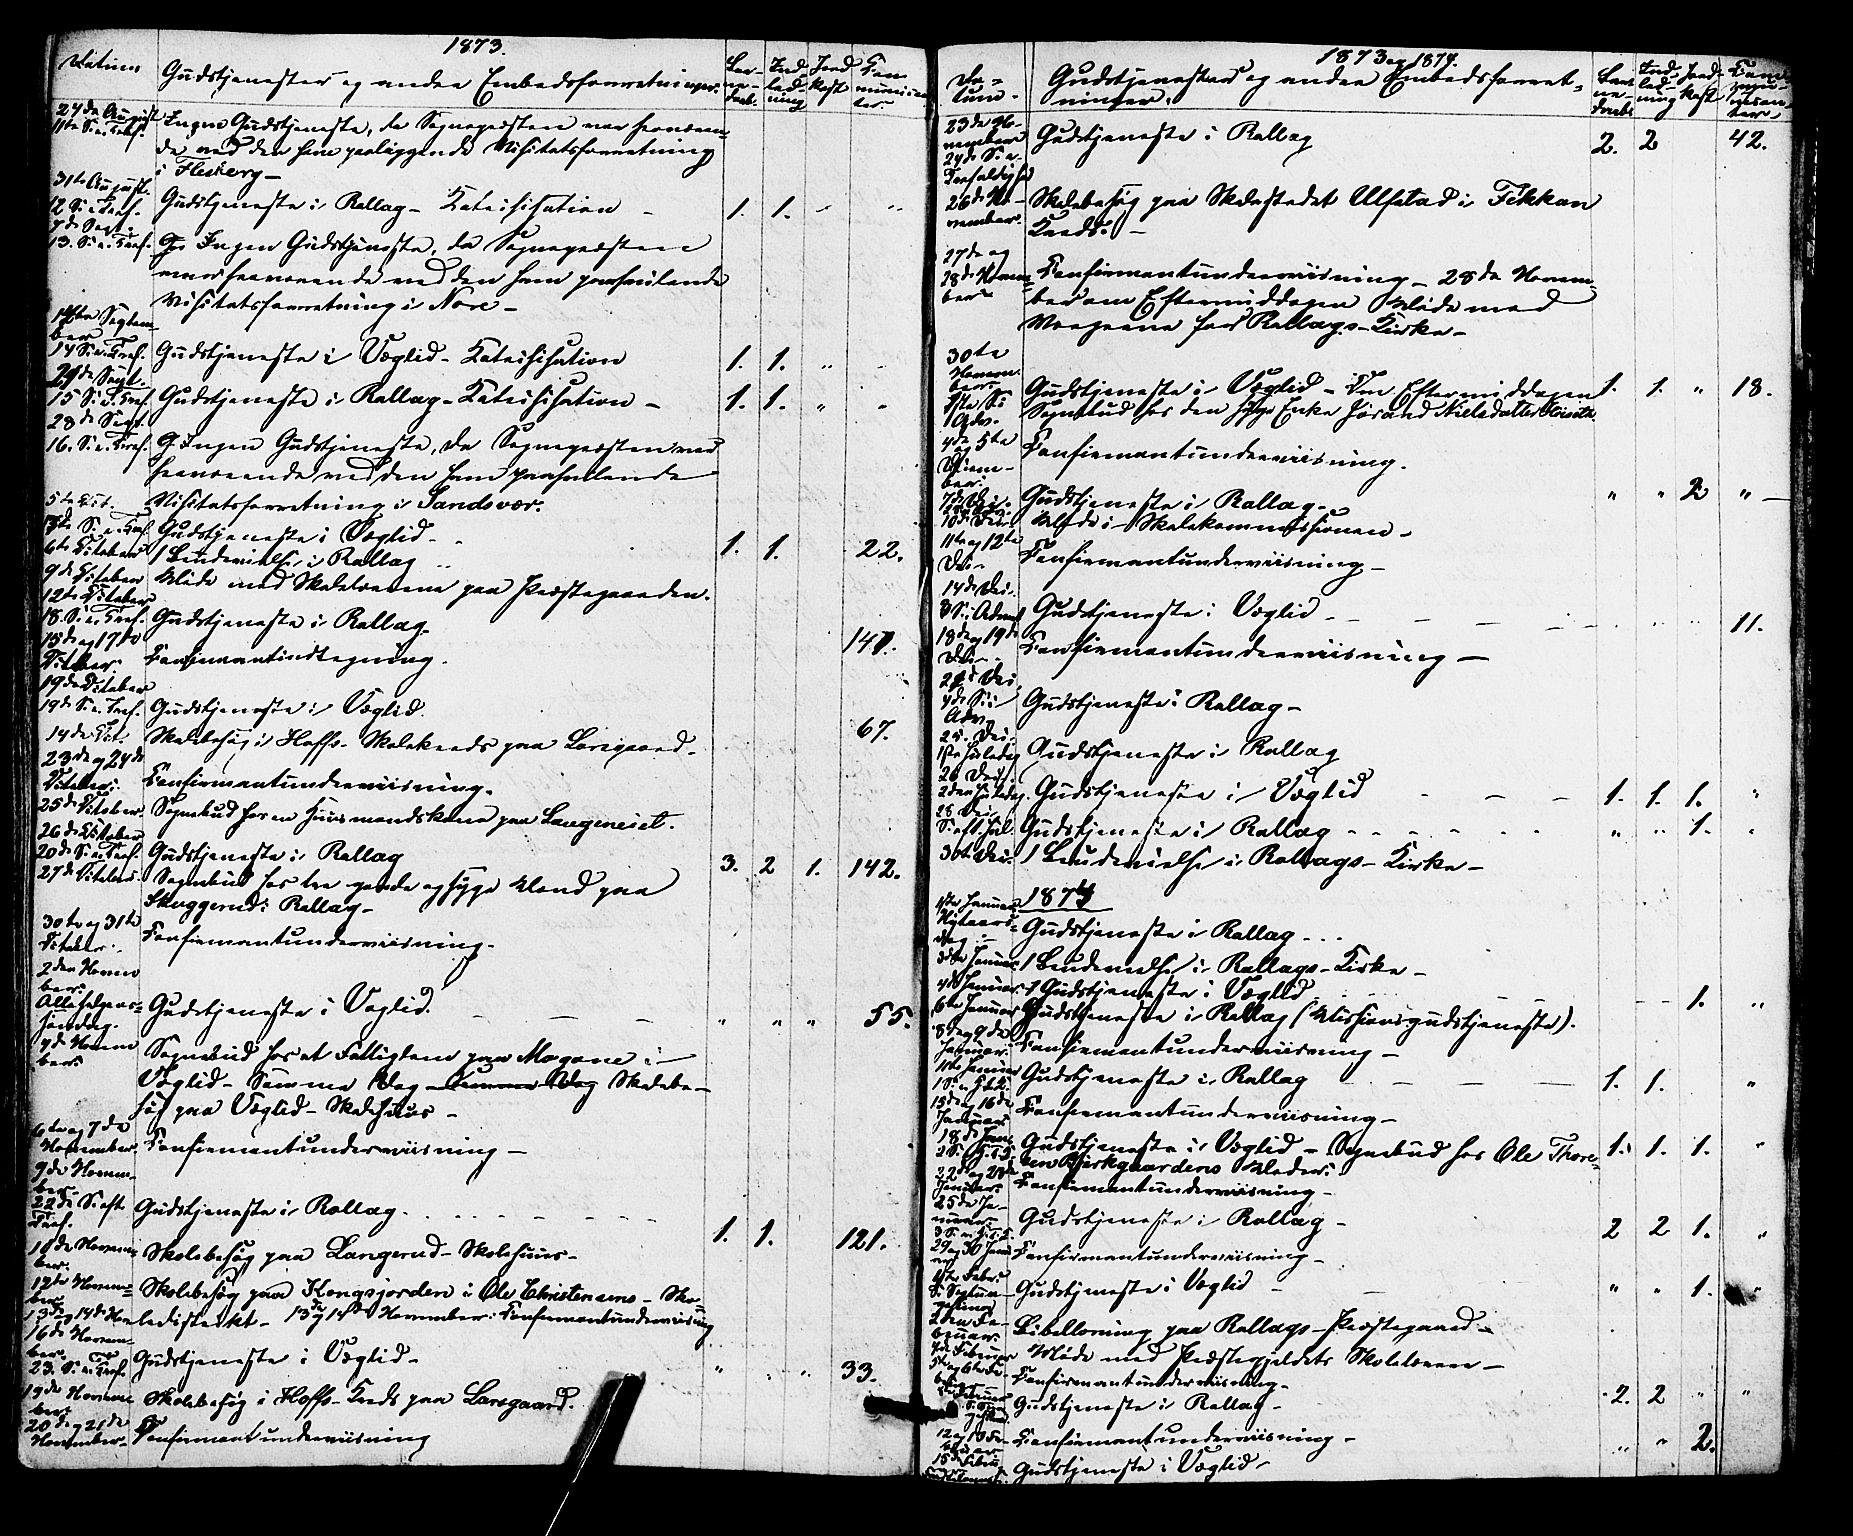 1873.
Datum Gudstjenester og andre Embedsforretninger. Bar- ne- daab. Ind- led- ning Jord kast Com municen ter.
24de August
11te S. e. Tref. Ingen Gudstjeneste, da Sognepræsten var fraværen-
de ved den ham paaliggende Visitatsforretning
i Flesberg -
31te August.
12 S. e. Tref. Gudstjeneste i Rollag - Katechisation - 1. 1. " "
7de Sept.
13. S. e. Tref. Ingen Gudstjeneste, da Sognepræsten
var fraværende ved den ham paahvilende
Visitatsforretning i Nore -
14de Septem-
ber
14 S. e. Tref. Gudstjeneste i Væglid - Katechisation 1. 1. " "
21de Sept.
15 S. e. Tref. Gudstjeneste i Rollag - Katechisation - 1. 1. " "
28de Sept.
16. S. e. Tref. Ingen Gudstjeneste, da Sognepræsten var
fraværende ved den ham paahvilende
Visitatsforretning i Sandsvær.
5te Oct.
S. e. Tref. Gudstjeneste i Væglid - 1. 1. 22.
6te October 1 Brudevielse i Rollag
9de October Møde med Skolelærerne paa Præstegaarden.
12te October
18. S. e. Tref. Gudstjeneste i Rollag. 141.
15de og 17de
October. Confirmantindtegning.
19de October
19de S. e. Tref. Gudstjeneste i Væglid. 67.
14de Oct. Skolebesøg i Hoffs-Skolekreds paa Larsgaard -
23de og 24de
October. Confirmantunderviisning.
25de October. Sognebud hos en Huusmandskone paa
26de October
20de S. e. Tref. Gudstjeneste i Rollag 3. 2 1. 142.
27de October. Sognebud hos syge Mand paa
Skuggerud i Rollag -
30te og 31te
October. Confirmantunderviisning.
2den Novem
ber.
Allehelgens-
søndag. Gudstjeneste i Væglid. - - - " " " 55.
4de Novem
ber. Sognebud hos et Fattiglem paa Mogane i
Væglid - Samme Dag - Skolebe-
søg paa Væglid-Skolehuus -
6te og 7de
November. Confirmantunderviisning -
9de Novem-
ber.
22de S. eft.
Tref. Gudstjeneste i Rollag. 1. 1. 121.
11de Novem-
ber. Skolebesøg paa Langerud-Skolehuus -
12de Novem-
ber Skolebesøg paa Kongsjorden i Ole Christensens - Sko-
13de og 14de Nov ledistrikt - 13de og 14de November. Confirmantunderviisning
16de Novem-
ber.
23. S. e. Tref. Gudstjeneste i Væglid - " " " 33.
19de Novem
ber. Skolebesøg i Hoffs-Kreds paa Larsgaard.
20de og 21de
November - Confirmantunderviisning
1873 og 1874.
Da- tum. Gudstjenester og andre Embedsforret- ninger. Bar- ne- daab Ind- led- ning Jord- kast Com- muni- kan- ter.
23de No-
vember
24de S. e.
Trefoldighed Gudstjeneste i Rollag 2. 2 42.
26de No-
vember. Skolebesøg paa Skolestedet Ulfstad i Fikkan
Kreds. -
27de og
28de Novem-
ber Confirmantunderviisning - 28de Novem-
ber om Eftermiddagen Møde med
Værgerne for Rollags-Kirke -
30te
Novem-
ber
1ste S. i
Adv. Gudstjeneste i Væglid - Om Eftermiddagen 1. 1. " 18.
Sognebud hos den syge Enke Jørand Nielsdatter
4de 5te
Decem-
ber. Confirmantunderviisning.
7de Dec. Gudstjeneste i Rollag - " " 2 " -
10de Dec. Møde i Skolekommissionen -
11te og 12te
Dec. Confirmantunderviisning -
14de Dec.
3 S. i Advent Gudstjeneste i Væglid - - - - 11.
18de og 19de
Dec. Confirmantunderviisning -
21de Dec.
4de S. i
Adv. Gudstjeneste i Rollag -
25. Dec.
1ste Juledag Gudstjeneste i Rollag
26 Dec.
2den Juledag. Gudstjeneste i Væglid - - - 1. 1. 1. "
28 Dec.
S. eft. Jul. Gudstjeneste i Rollag - - - - " " 1. "
30te Dec. 1 Brudevielse i Rollags-Kirke -
1874
1ste Januar
Nytaars-
dag Gudstjeneste i Rollag ...
3die Januar 1 Brudevielse i Rollags-Kirke -
4de Januar Gudstjeneste i Væglid - - 1. "
6te Januar Gudstjeneste i Rollag (Missionsgudstjeneste).
8de og 9de
Januar. Confirmantunderviisning -
11te Januar
1 S. e. H. 3 K. Gudstjeneste i Rollag - - - 1. 1. "
15de og 16de
Januar Confirmantunderviisning -
18de Jan.
2 S. e. H. 3 K. Gudstjeneste i Væglid - Sognebud hos Ole Thore- 1. 1. 1. "
sen Bjerkgaardens Moder.
22de og 23de
Januar. Confirmantunderviisning -
25de Ja-
nuar.
3 S. e. H. 3 K. Gudstjeneste i Rollag - 2 2 1. "
29 og 30 Janu
ar Confirmantunderviisning -
1ste Febr.
S. Septua-
gesima Gudstjeneste i Væglid - " " 1.
2den Fe-
bruar. Bibellæsning paa Rollags-Præstegaard -
4de Februar Møde med Præstegjeldets Skolelærere -
5te og 6te Fe-
bruar Confirmantunderviisning -
Februar Gudstjeneste i Rollag - 2. 2 " "
12 og 13de
Februar Confirmantunderviisning - " " 2.
15de Februar Gudstjeneste i Væglid -